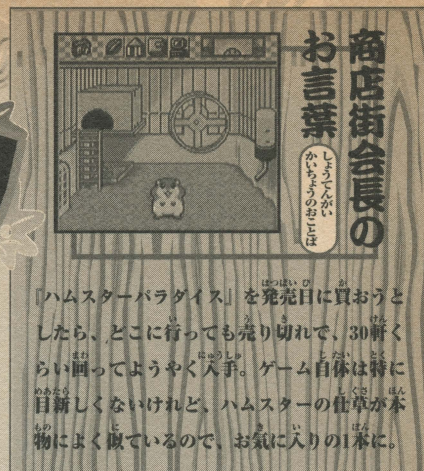 商店街会長の
お言葉
しょうてんがい
かいちょうのおことば
『ハムスターパラダイス』を発売日に買おうと
したら、どこに行っても売り切れで、30軒く
らい回ってようやく入手。ゲーム自体は特に
目新しくないけれど、ハムスターの仕草が本
物によく似ているので、お気に入りの1本に。